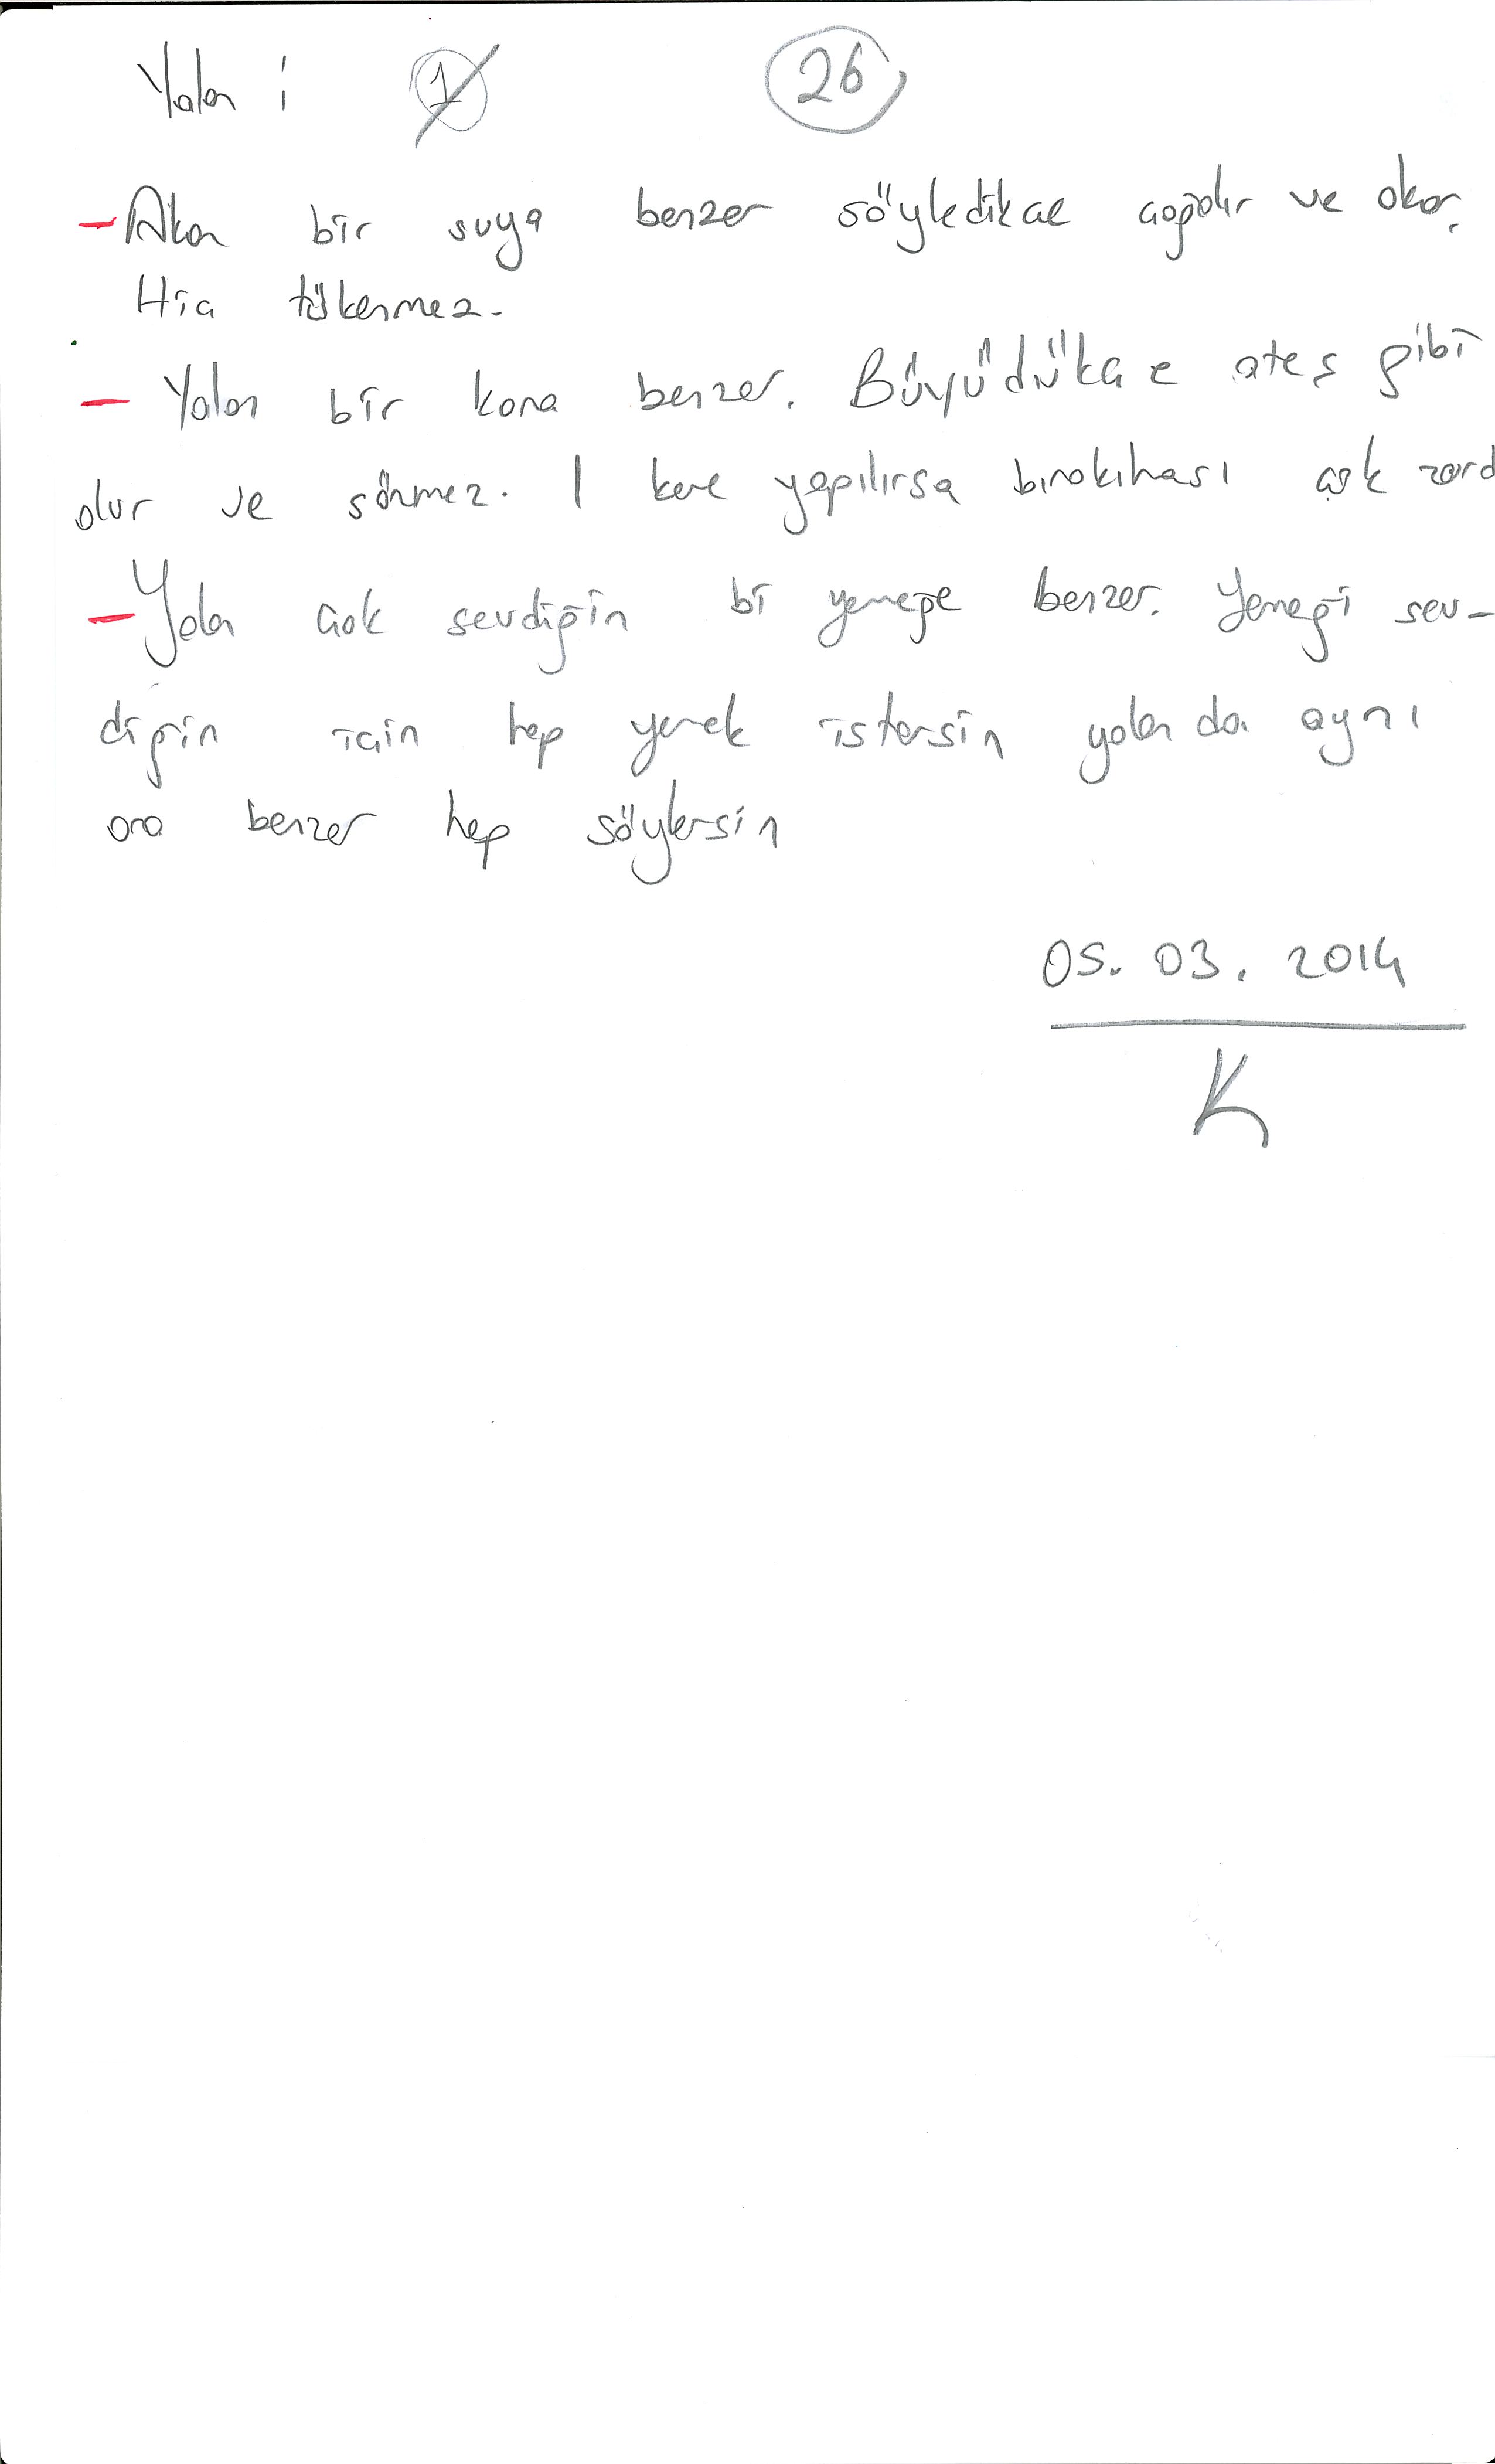 Yalan : 1 26
- Akan bir suya benzer söyledikçe çoğalır ve akar.
Hiç tükenmez.
- Yalan bir kana benzer. Büyüdükçe ateş gibi
olur ve sönmez. 1 kere yapılırsa bırakılması çok zord
- Yalan çok sevdiğin bi yemeğe benzer. Yemeği sev-
diğin için hep yemek istersin yalan da aynı
ona benzer hep söylersin
05. 03. 2014
K